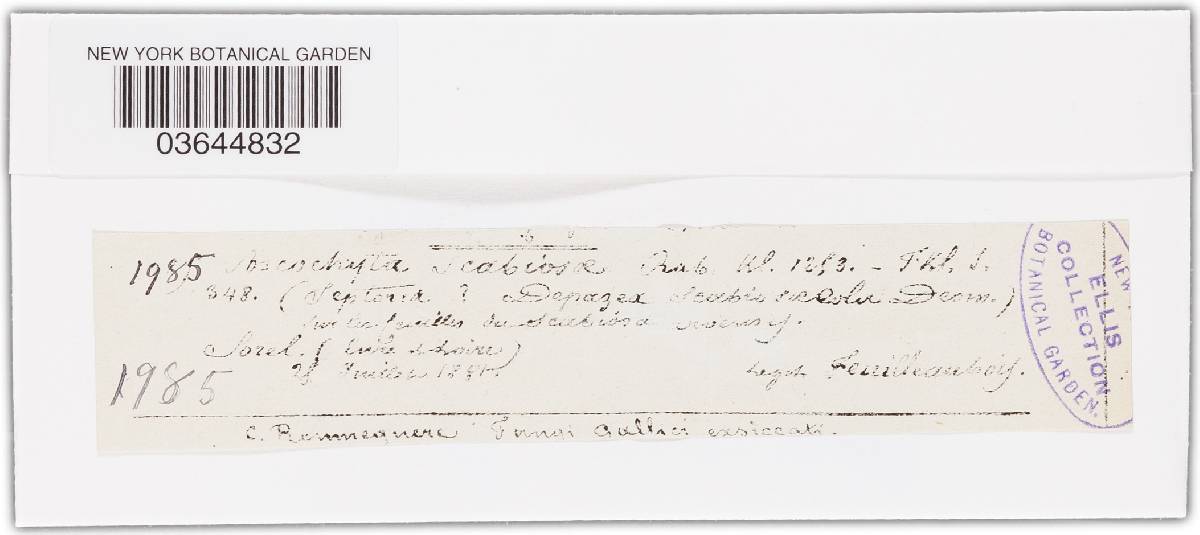 NEW YORK BOTANICAL GARDEN
03644832
1985 Ascochyta Scabiosæ Rab. Kl. 1253. - Fkl. S.
348. (Septoria ? Depazea scabiosæcola Desm.)
sur les feuilles du Scabiosa arvensis.
Sorel. ( & Loire)
1881.
legit Feuilleaubois.
1985
C. Roumeguere Fungi Gallici exsiccati.
NEW
BOTANICAL GARDEN.
ELLIS
COLLECTION